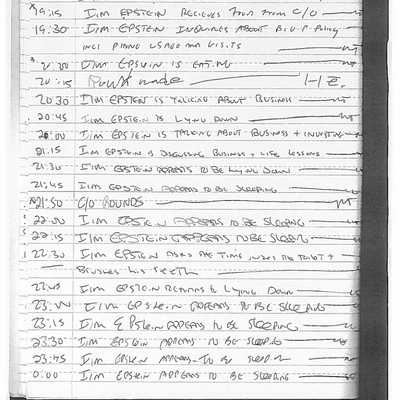 19:15 I/m EPSTEIN RECIEVES FOOD FROM C/O
19:30 I/m EPSTEIN INQUIRES ABOUT B.O.P POLICY
INCL PHONE USAGE AND VISITS
20:00 I/m EPSTEIN IS EATING
20:15 Round made
20:30 I/m EPSTEIN IS TALKING ABOUT BUSINESS
20:45 I/m EPSTEIN IS LYING DOWN
21:00 I/m EPSTEIN IS TALKING ABOUT BUSINESS + INVESTING
21:15 I/m EPSTEIN IS DISCUSSING BUSINESS + LIFE LESSONS
21:30 I/m EPSTEIN APPEARS TO BE LYING DOWN
21:45 I/m EPSTEIN APPEARS TO BE SLEEPING
21:50 C/O ROUNDS
22:00 I/m EPSTEIN APPEARS TO BE SLEEPING
22:15 I/m EPSTEIN APPEARS TO BE SLEEPING
22:30 I/m EPSTEIN ASKS THE TIME USES THE TOILET +
BRUSHES HIS TEETH
22:45 I/m EPSTEIN RETURNS TO LYING DOWN
23:00 I/m EPSTEIN APPEARS TO BE SLEEPING
23:15 I/m EPSTEIN APPEARS TO BE SLEEPING
23:30 I/m EPSTEIN APPEARS TO BE SLEEPING
23:45 I/m EPSTEIN APPEARS TO BE SLEEPING
0:00 I/m EPSTEIN APPEARS TO BE SLEEPING